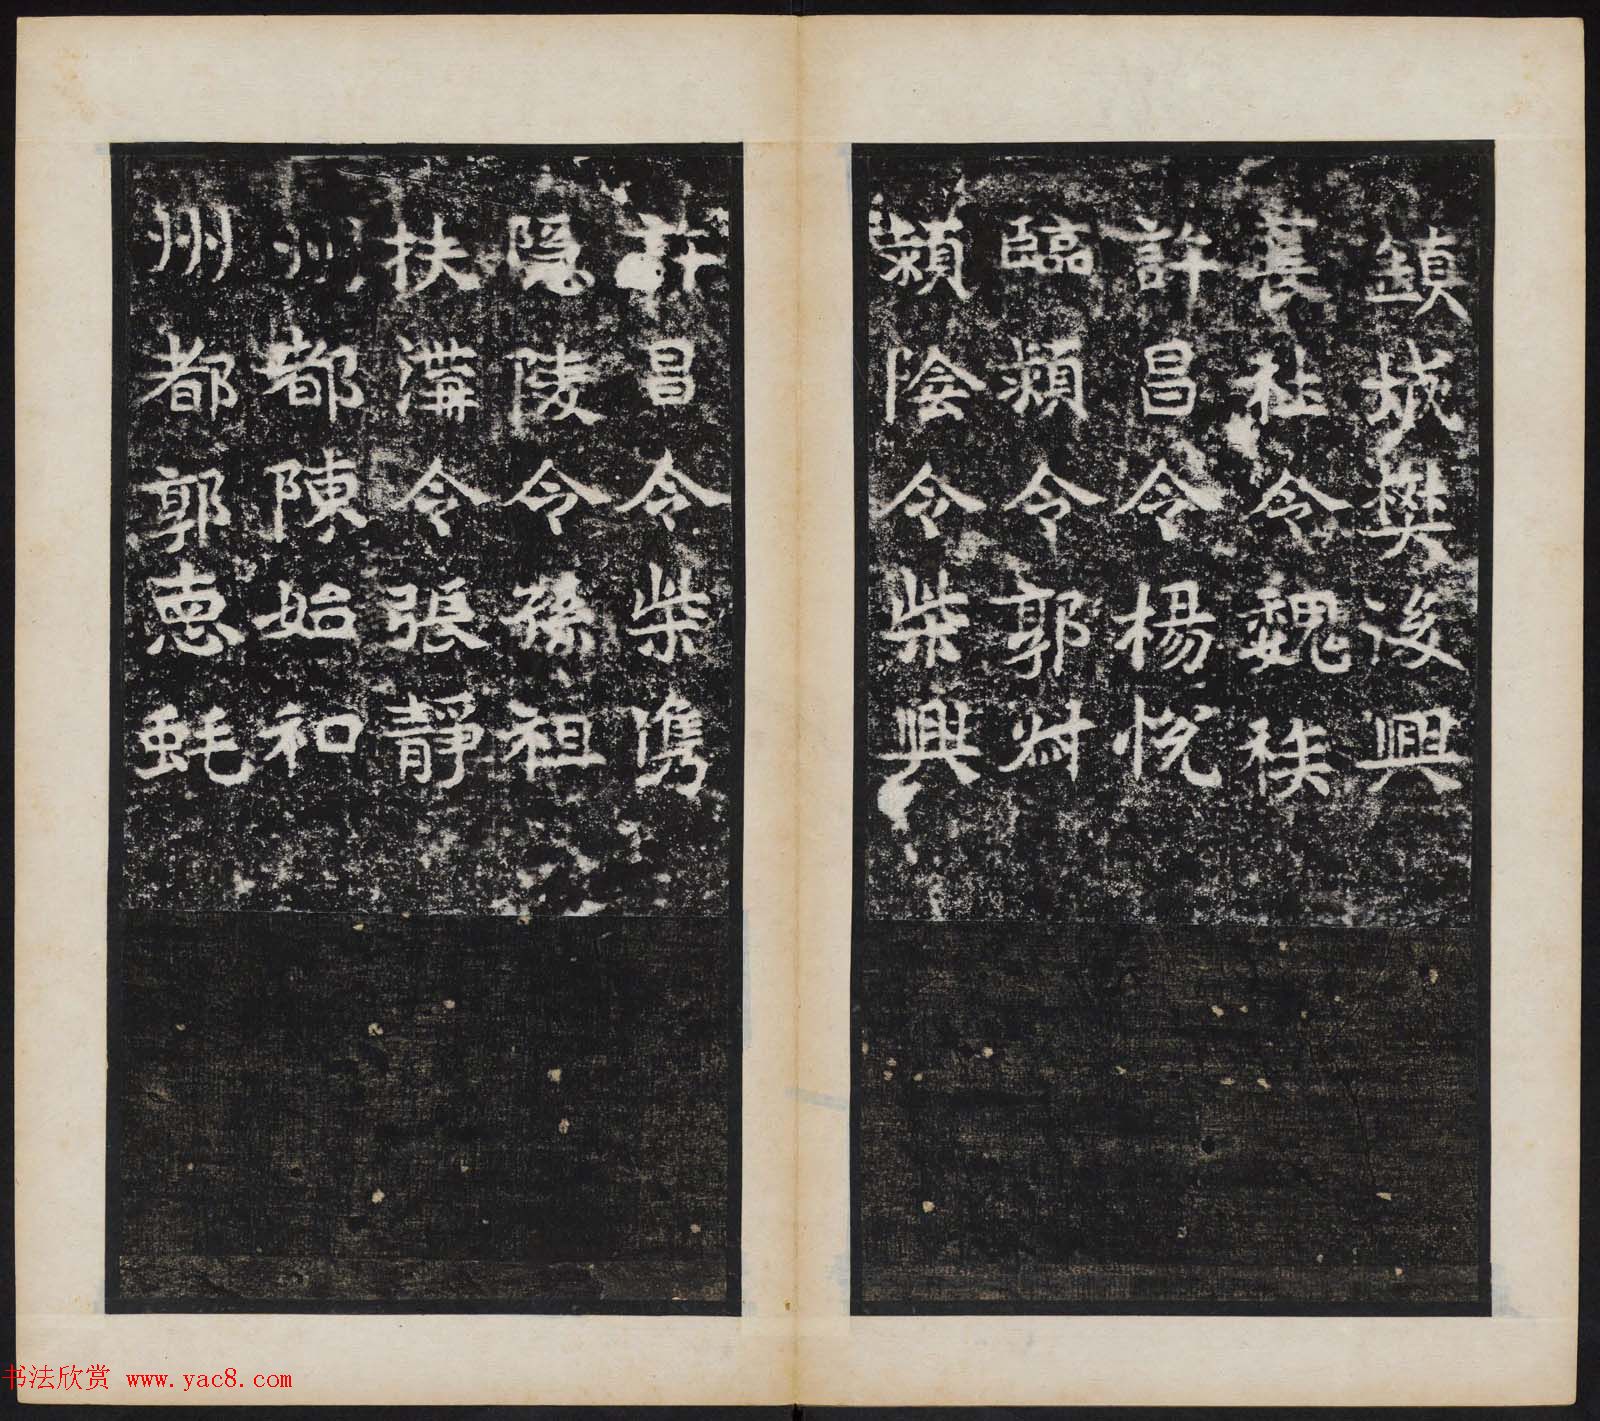 鎮城樊後興
長社令魏𥞵
許昌令楊悅
臨潁令郭尌
潁陰令柴興
許昌令柴儁
隱陵令孫祖
扶溝令張靜
州都陳始和
州都郭惠蚝
书法欣赏 www.yac8.com